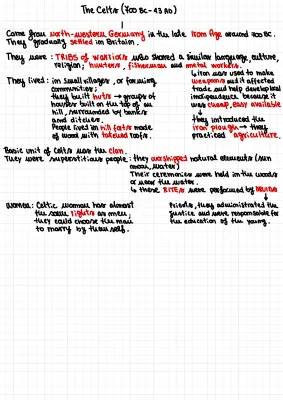 The Celts (700 BC - 43 AD)
Came from north-western Germany in the late Iron Age around 700 BC.
They gradually settled in Britain.
They were: TRIBES of WARRIORS who shared a similar language, culture,
religion; hunters, fisherman and metal workers.
↳ Iron was used to make
weapons and it affected
trade and help develop local
independence because it
was cheap, easy available
↓
they introduced the
iron plough → they
practiced agriculture.
They lived: in small villages, or farming
communities;
they built huts → groups of
houses built on the top of an
hill, surrounded by banks
and ditches.
People lived in hill forts made
of wood with roofs.
Basic unit of Celts was the clan.
They were superstitious people: they worshipped natural elements (sun
moon, water)
Their ceremonies were held in the woods
or near the water.
↳ these RITES were performed by DRUIDS
↓
Priests, they administrated the
justice and were responsible for
the education of the young.
WOMEN: Celtic women has almost
the same rights as men;
they could choose the man
to marry by themself.